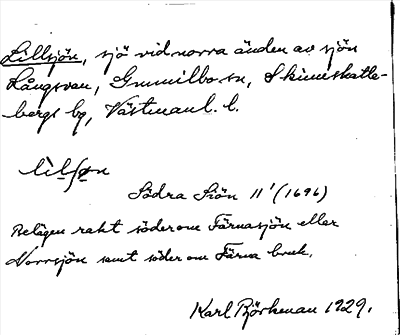 Lillsjön, sjö vid norra änden av sjön
Långsvan, Gunnilbo sn, Skinnskatte-
bergs bg, Västmanl. l.
lìlʃøn
Södra Siön 11' (1696)
Belägen rakt söder om Färnasjön eller
Norrsjön samt söder om Färna bruk.
Karl Björkman 1929.